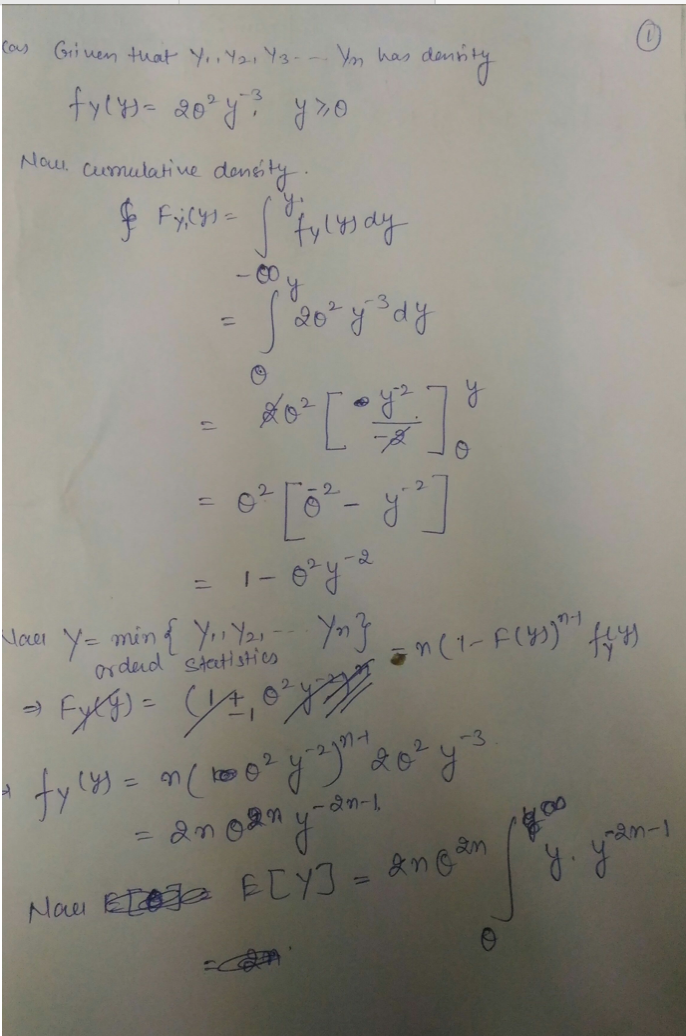 ①
(a) Given that Y₁, Y₂, Y₃ --- Yn has density
fy(y) = 2θ² y⁻³, y ≥ θ
Now cumulative density.
Fyᵢ(y) = ∫_{-∞}^{y} fy(y) dy
= ∫_{θ}^{y} 2θ² y⁻³ dy
= 2θ² [ y⁻² / -2 ]_{θ}^{y}
= θ² [ θ⁻² - y⁻² ]
= 1 - θ² y⁻²
Now Y = min { Y₁, Y₂, --- Yn } = n (1 - F(y))ⁿ⁻¹ fy(y)
orderd statistics
⇒ Fy(y) =
fy(y) = n ( θ² y⁻² )ⁿ⁻¹ 2θ² y⁻³
= 2n θ²ⁿ y⁻²ⁿ⁻¹.
Now E[Y] = 2n θ²ⁿ ∫_{θ}^{∞} y. y⁻²ⁿ⁻¹
= 2n